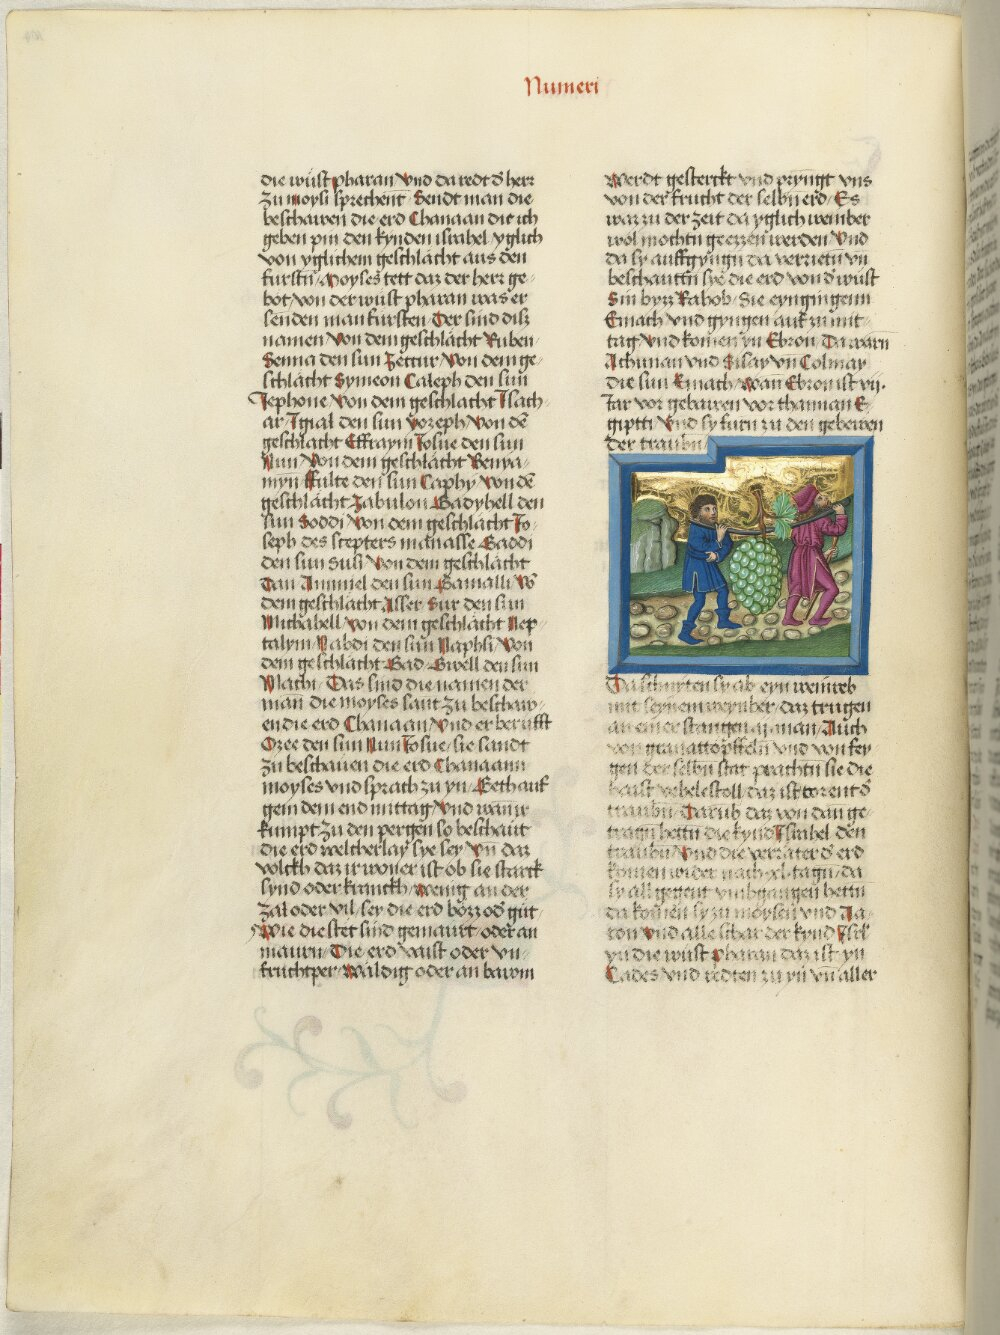 Numeri
die wüst pharan Vnd da redt d̄ herr
zu moysi sprechent Sendt man die
beschawen die erd Chanaan die ich
geben pin den kynden israhel yglich
von yglichem geschlächt aus den
fursten Moyses tett daz der herr ge-
bot von der wüst pharan was er
senden man fursten Der sind disz
namen Von dem geschlächt Ruben
Senna den sun Zettur Von dem ge-
schlächt Symeon Caleph den sun
Jephone Von dem geschlächt Isach-
ar Igial den sun yozeph Von dē
geschlächt Effraym Josue den sun
Nun Von dem geschlächt Benya-
myn ffulte den sun Caphy Von dē
geschlächt Zabulon Gadyhell den
sun Soddi Von dem geschlächt Jo-
seph des scepters manasse Gaddi
den sun Susi Von dem geschlächt
Dan Ammiel den sun Gamalli Vō
dem geschlächt Asser Sur den sun
Michahell Von dem geschlächt Nep-
talym Nabdi den sun Naphsi Von
dem geschlächt Gad Gwell den sun
Machi Das sind die namen der
man die moyses sant zu beschaw-
en die erd Chanaan Vnd er berufft
Ozee den sun Nun Josue sie sandt
zu beschauen die erd Chanaann
moyses vnd sprach zu yn Geth auf
gein dem end mittag Vnd wann ir
kumpt zu den pergen so beschaut
die erd welcherlay sye sey Vn daz
volckh daz ir woner ist ob sie starck
synd oder kranckh Wenig an der
zal oder vil sey die erd bözz od̄ gut
Wie die stet sind gemaurt oder an
maurn Die erd vaist oder vn-
fruchtper Waldig oder an bawm
Werdt gesterckt vnd pryngt vns
von der frücht der selbn erd Es
war zu der zeit da yglich weinber
wol mochtn geezzen werden Vnd
da sy auffgyngn da verrietn vn
beschauttn sye die erd von d̄ wüst
Sin bysz Rahob Sie eyngingenn
Emath vnd gyngen auf zu mit-
tag Vnd komen yn Ebron Da warn
Achiman vnd Sisay vn Colmay
die sun Enach Wan Ebron ist vij.
Jar vor gebawen vor thamnan E-
giptti Vnd sy furn zu den gebewen
der traubn
Da schnyten sy ab eyn weinreb
mit seynem weynber daz trugen
an einer stangen ij man Auch
von granattöpffeln vnd von fey
gen der selbn stat prachtn sie die
haist vehelestoll daz ist torent d̄
traubn Darüb daz von dan ge-
tragn hettn die kynd Israhel den
traubn Vnd die verrater d̄ erd
komen wider nach xl tagn da
sy all gegent vmbgangen hettn
da komen sy zu moysen vnd Aa-
ron Vnd alle schar der kynd Isrl
yn die wüst Pharan daz ist yn
Cades vnd redten zu yn vn aller